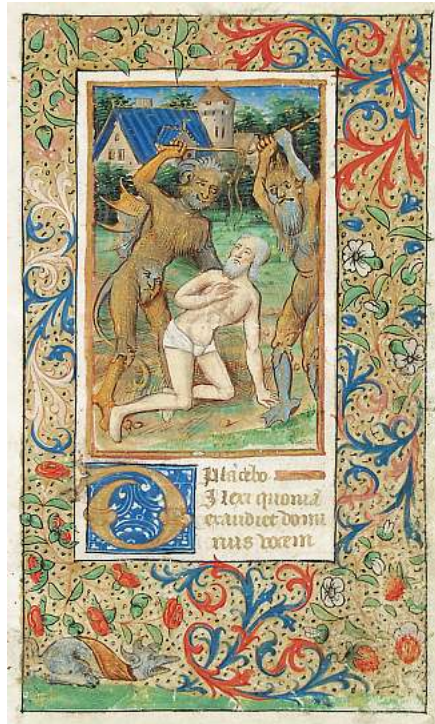 Placebo
DIlexi quoniā
exaudiet domi
nus vocem